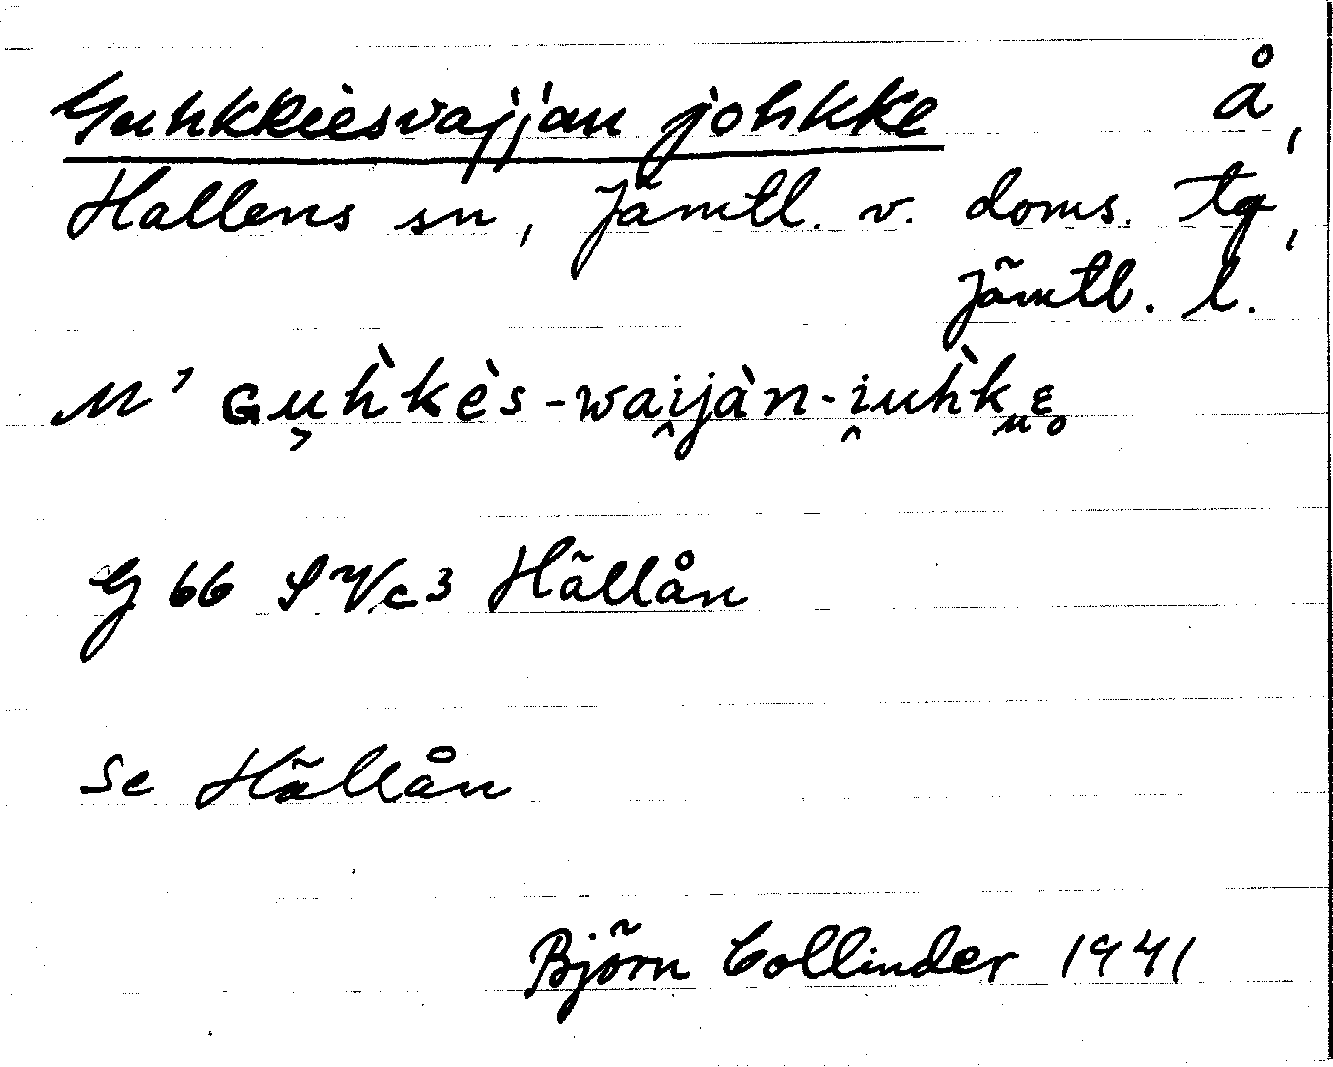 Guhkkiesvajjan johkke å,
Hallens sn, Jämtl. v. doms. tg,
Jämtl. l.
M' Gu̬h̀kès-wai̯jàn-i̯uh̀kᵤɛ̥
G 66 S V/c 3 Hällån
Se Hällån
Björn Collinder 1941